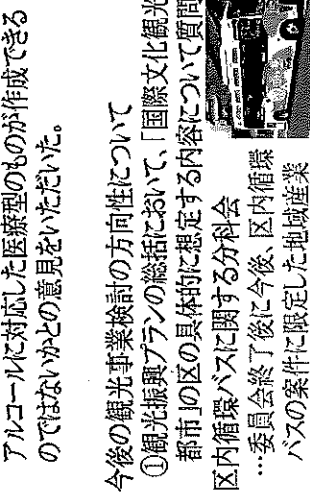 アルコールに対応した医療型のものが作成できる
のではないかとの意見をいただいた。
今後の観光事業検討の方向性について
①観光振興プランの総括において、「国際文化観光
都市」の区の具体的に想定する内容について質問
区内循環バスに関する分科会
…委員会終了後に今後、区内循環
バスの案件に限定した地域産業